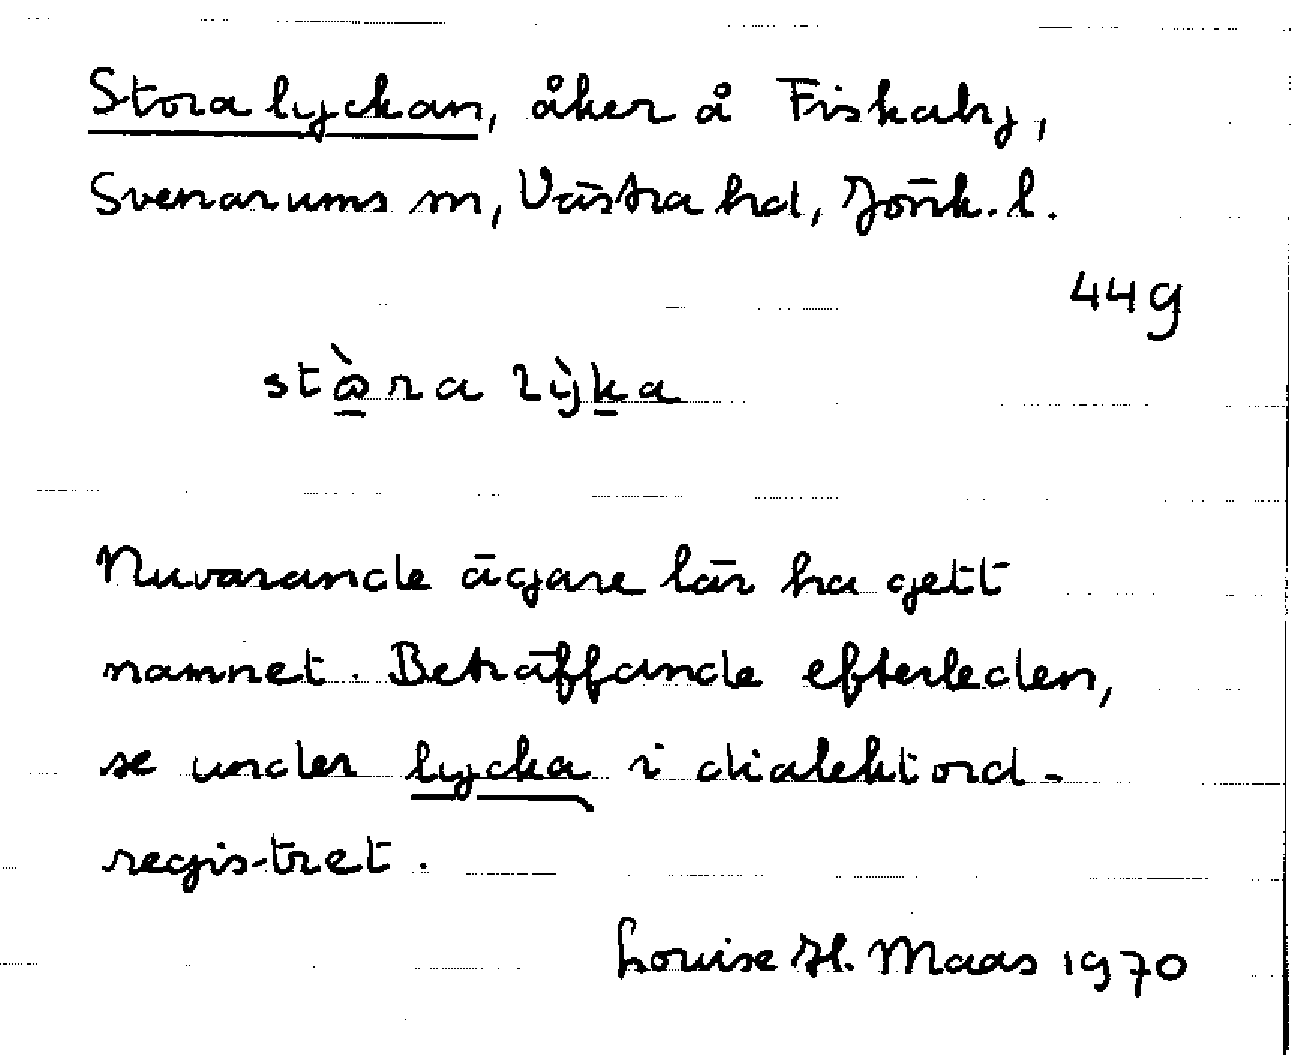 Stora lyckan, åker å Fiskaby,
Svenarums sn, Västra hd, Jönk. l.
44g
stɷ̀ra lỳka
Nuvarande ägare lär ha gett
namnet. Beträffande efterleden,
se under lycka i dialektord-
registret.
Louise H. Maas 1970